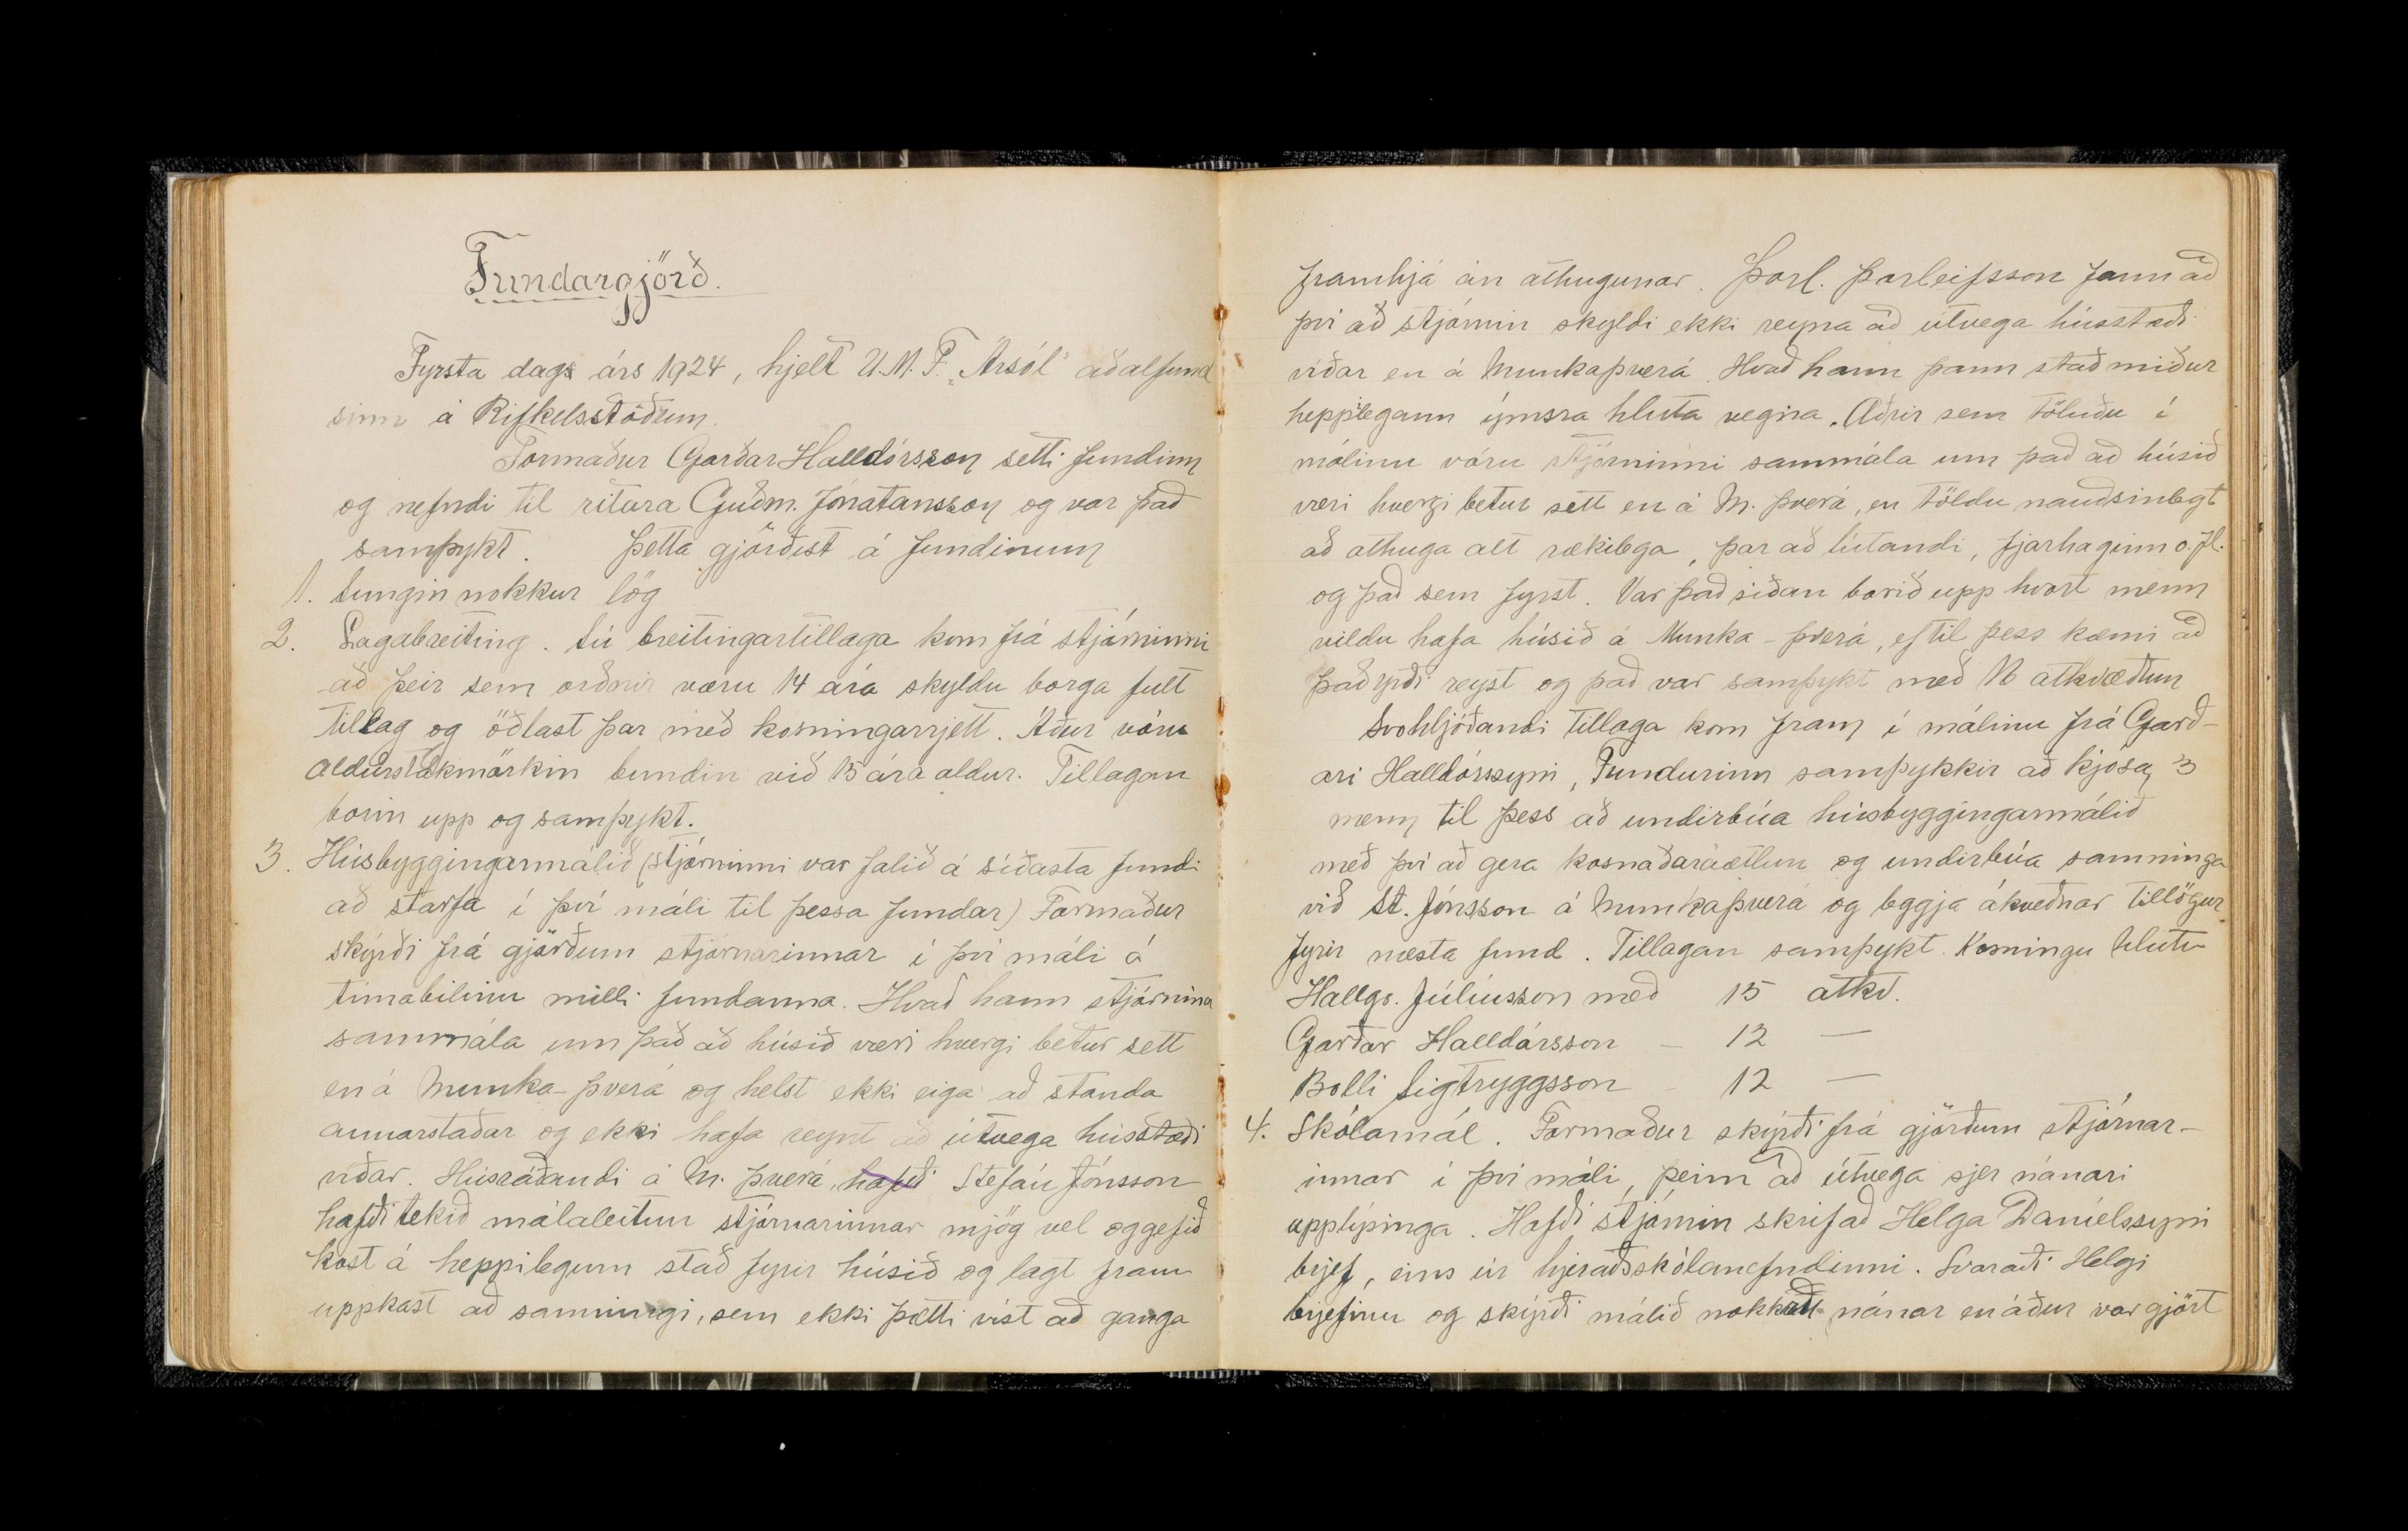 Fundargjörð.
Fyrsta dags árs 1924, hjelt U.M.F. „Ársól" aðalfund
sinn á Rifkelsstöðum.
Formaður Garðar Halldórsson setti fundinn
og nefndi til ritara Guðm. Jónatansson og var það
samþykt. Þetta gjörðist á fundinum
1. Sungin nokkur lög
2. Lagabreiting. Sú breitingartillaga kom frá stjórninni
að þeir sem orðnir væru 14 ára skyldu borga fult
tillag og öðlast þar með kosningarrjett. Áður vóru
aldurstakmörkin bundin við 15 ára aldur. Tillagan
borin upp og samþykt.
3. Húsbyggingarmálið (stjórninni var falið á síðasta fundi
að starfa í því máli til þessa fundar) Formaður
skýrði frá gjörðum stjórnarinnar í því máli á
tímabilinu milli fundanna. Hvað hann stjórnina
sammála um það að húsið væri hvergi betur sett
en á Munka-þverá og helst ekki eiga að standa
annarstaðar og ekki hafa reynt að útvega hússtæði
víðar. Húsráðandi á M. þverá, hafði Stefán Jónsson
hafði tekið málaleitun stjórnarinnar mjög vel og gefið
kost á heppilegum stað fyrir húsið og lagt fram
uppkast að samningi, sem ekki þætti víst að ganga
framhjá án athugunar. Þorl. Þorleifsson fann að
því að stjórnin skyldi ekki reyna að útvega hússtæði
víðar en á Munkaþverá. Hvað hann þann stað miður
heppilegann ýmsra hluta vegna. Aðrir sem töluðu í
málinu vóru stjórninni sammála um það að húsið
væri hvergi betur sett en á M. þverá, en töldu nauðsinlegt
að athuga alt rækilega, þar að lútandi, fjárhaginn o.fl.
og það sem fyrst. Var það síðan borið upp hvort menn
vildu hafa húsið á Munka-þverá, ef til þess kæmi að
það yrði reyst og það var samþykt með 16 atkvæðum
Svohljóðandi tillaga kom fram í málinu frá Garð-
ari Halldórssyni, Fundurinn samþykkir að kjósa 3
menn til þess að undirbúa húsbyggingarmálið
með því að gera kosnaðaráætlun og undirbúa samninga
við St. Jónsson á Munkaþverá og leggja ákveðnar tillögur
fyrir næsta fund. Tillagan samþykt. Kosningu hlutu
Hallgr. Júlíusson með 15 atkv.
Garðar Halldórsson – 12 —
Bolli Sigtryggsson – 12 —
4. Skólamál. Formaður skýrði frá gjörðum stjórnar-
innar í því máli, þeim að útvega sjer nánari
upplýsinga. Hafði stjórnin skrifað Helga Daníelssyni
brjef, eins úr hjeraðsskólanefndinni. Svaraði Helgi
brjefinu og skýrði málið nokkuð nánar en áður var gjört